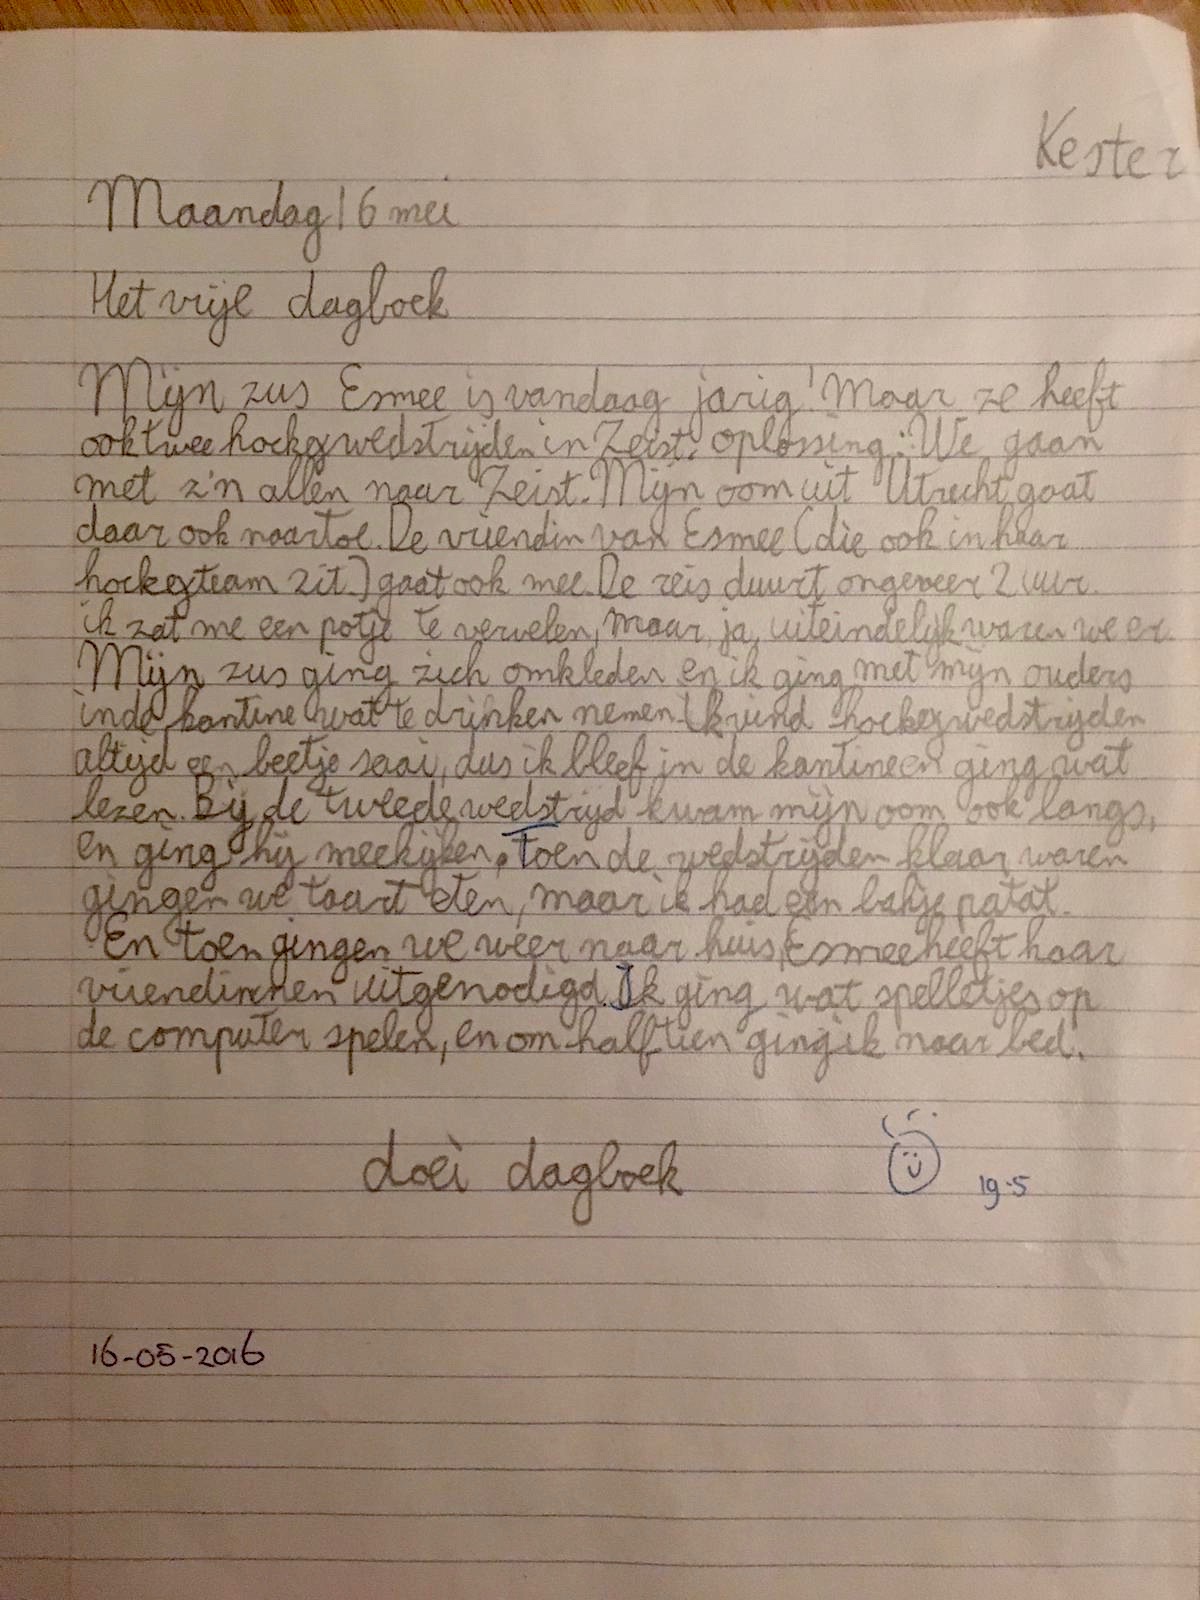 Kester
Maandag 16 mei
Het vrije dagboek
Mijn zus Esmee is vandaag jarig! Maar ze heeft
ook twee hockeywedstrijden in Zeist. oplossing: We gaan
met z'n allen naar Zeist. Mijn oom uit Utrecht gaat
daar ook naartoe. De vriendin van Esmee (die ook in haar
hockeyteam zit) gaat ook mee. De reis duurt ongeveer 2 uur.
ik zat me een potje te vervelen, maar ja, uiteindelijk waren we er.
Mijn zus ging zich omkleden en ik ging met mijn ouders
in de kantine wat te drinken nemen. Ik vind hockeywedstrijden
altijd een beetje saai, dus ik bleef in de kantine en ging wat
lezen. Bij de tweede wedstrijd kwam mijn oom ook langs,
en ging hij meekijken. Toen de wedstrijden klaar waren
gingen we taart eten, maar ik had een bakje patat.
En toen gingen we weer naar huis, Esmee heeft haar
vriendinnen uitgenodigd. Ik ging wat spelletjes op
de computer spelen, en om half tien ging ik naar bed.
doei dagboek
19-5
16-05-2016